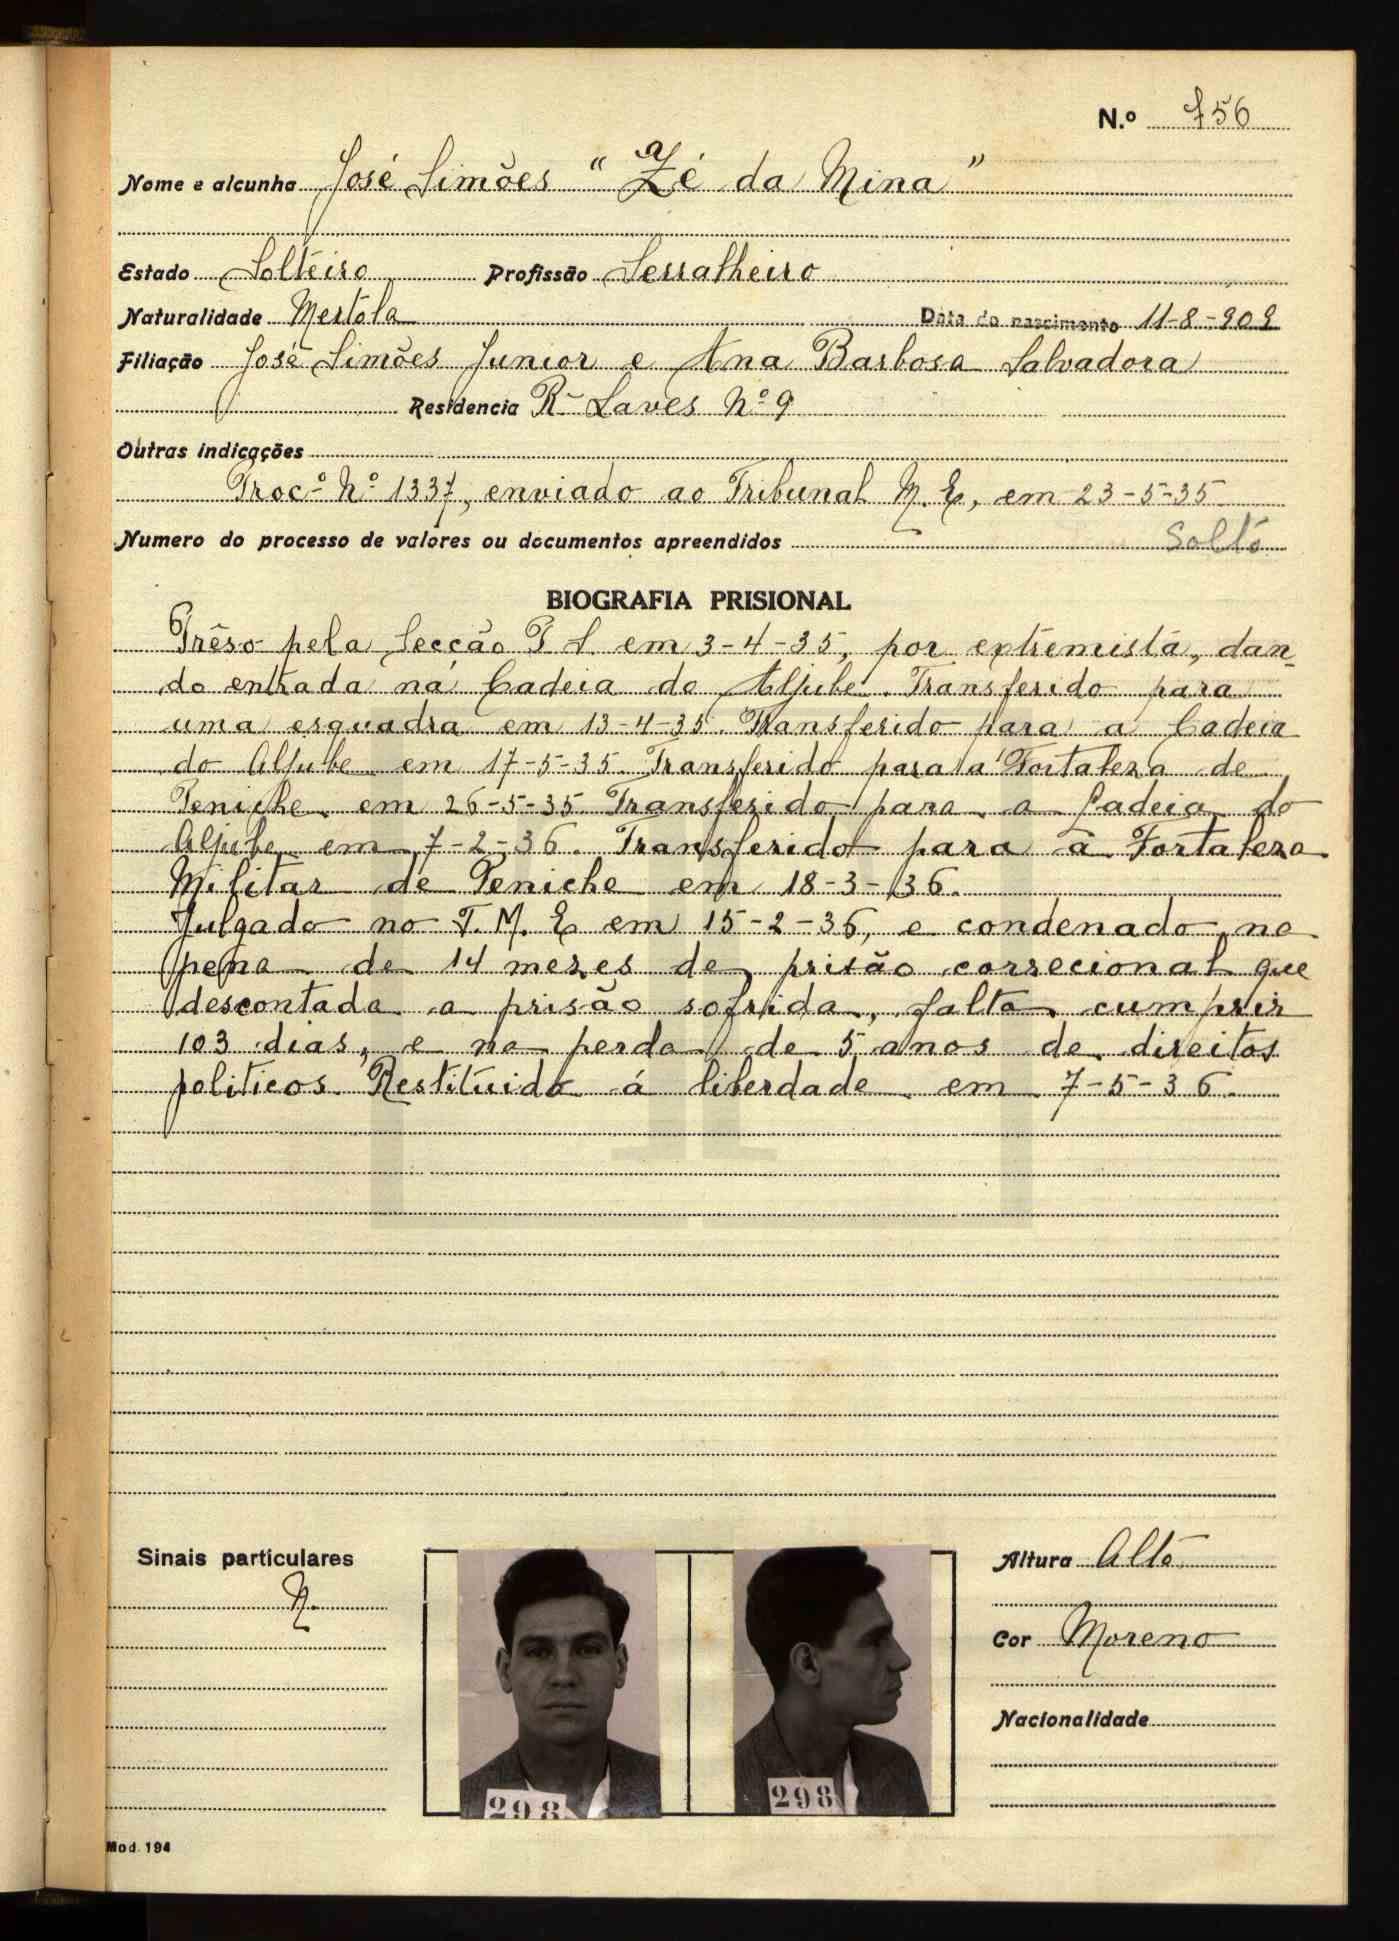 N.º 756
Nome e alcunha José Simões "Zé da Mina"
Estado Solteiro Profissão Serralheiro
Naturalidade Mertola Data do nascimento 11-8-909
Filiação José Simões Junior e Ana Barbosa Salvadora
Residencia R- Laves Nº 9
Outras indicações
Procº Nº 1337, enviado ao Tribunal M. E, em 23-5-35
Numero do processo de valores ou documentos apreendidos Solto
BIOGRAFIA PRISIONAL
Prêso pela Secção P S. em 3-4-35, por extremista, dan-
do entrada na Cadeia do Aljube. Transferido para
uma esquadra em 13-4-35. Transferido para a Cadeia
do Aljube em 17-5-35. Transferido para a Fortaleza de
Peniche em 26-5-35. Transferido para a Cadeia do
Aljube em 7-2-36. Transferido para a Fortaleza
Militar de Peniche em 18-3-36.
Julgado no T. M. E em 15-2-36, e condenado na
pena de 14 mezes de prisão correcional que
descontada a prisão sofrida, falta cumprir
103 dias, e na perda de 5 anos de direitos
politicos. Restituido á liberdade em 7-5-36.
Sinais particulares
N.
298
298
Altura Alto
Cor Moreno
Nacionalidade
Mod. 194